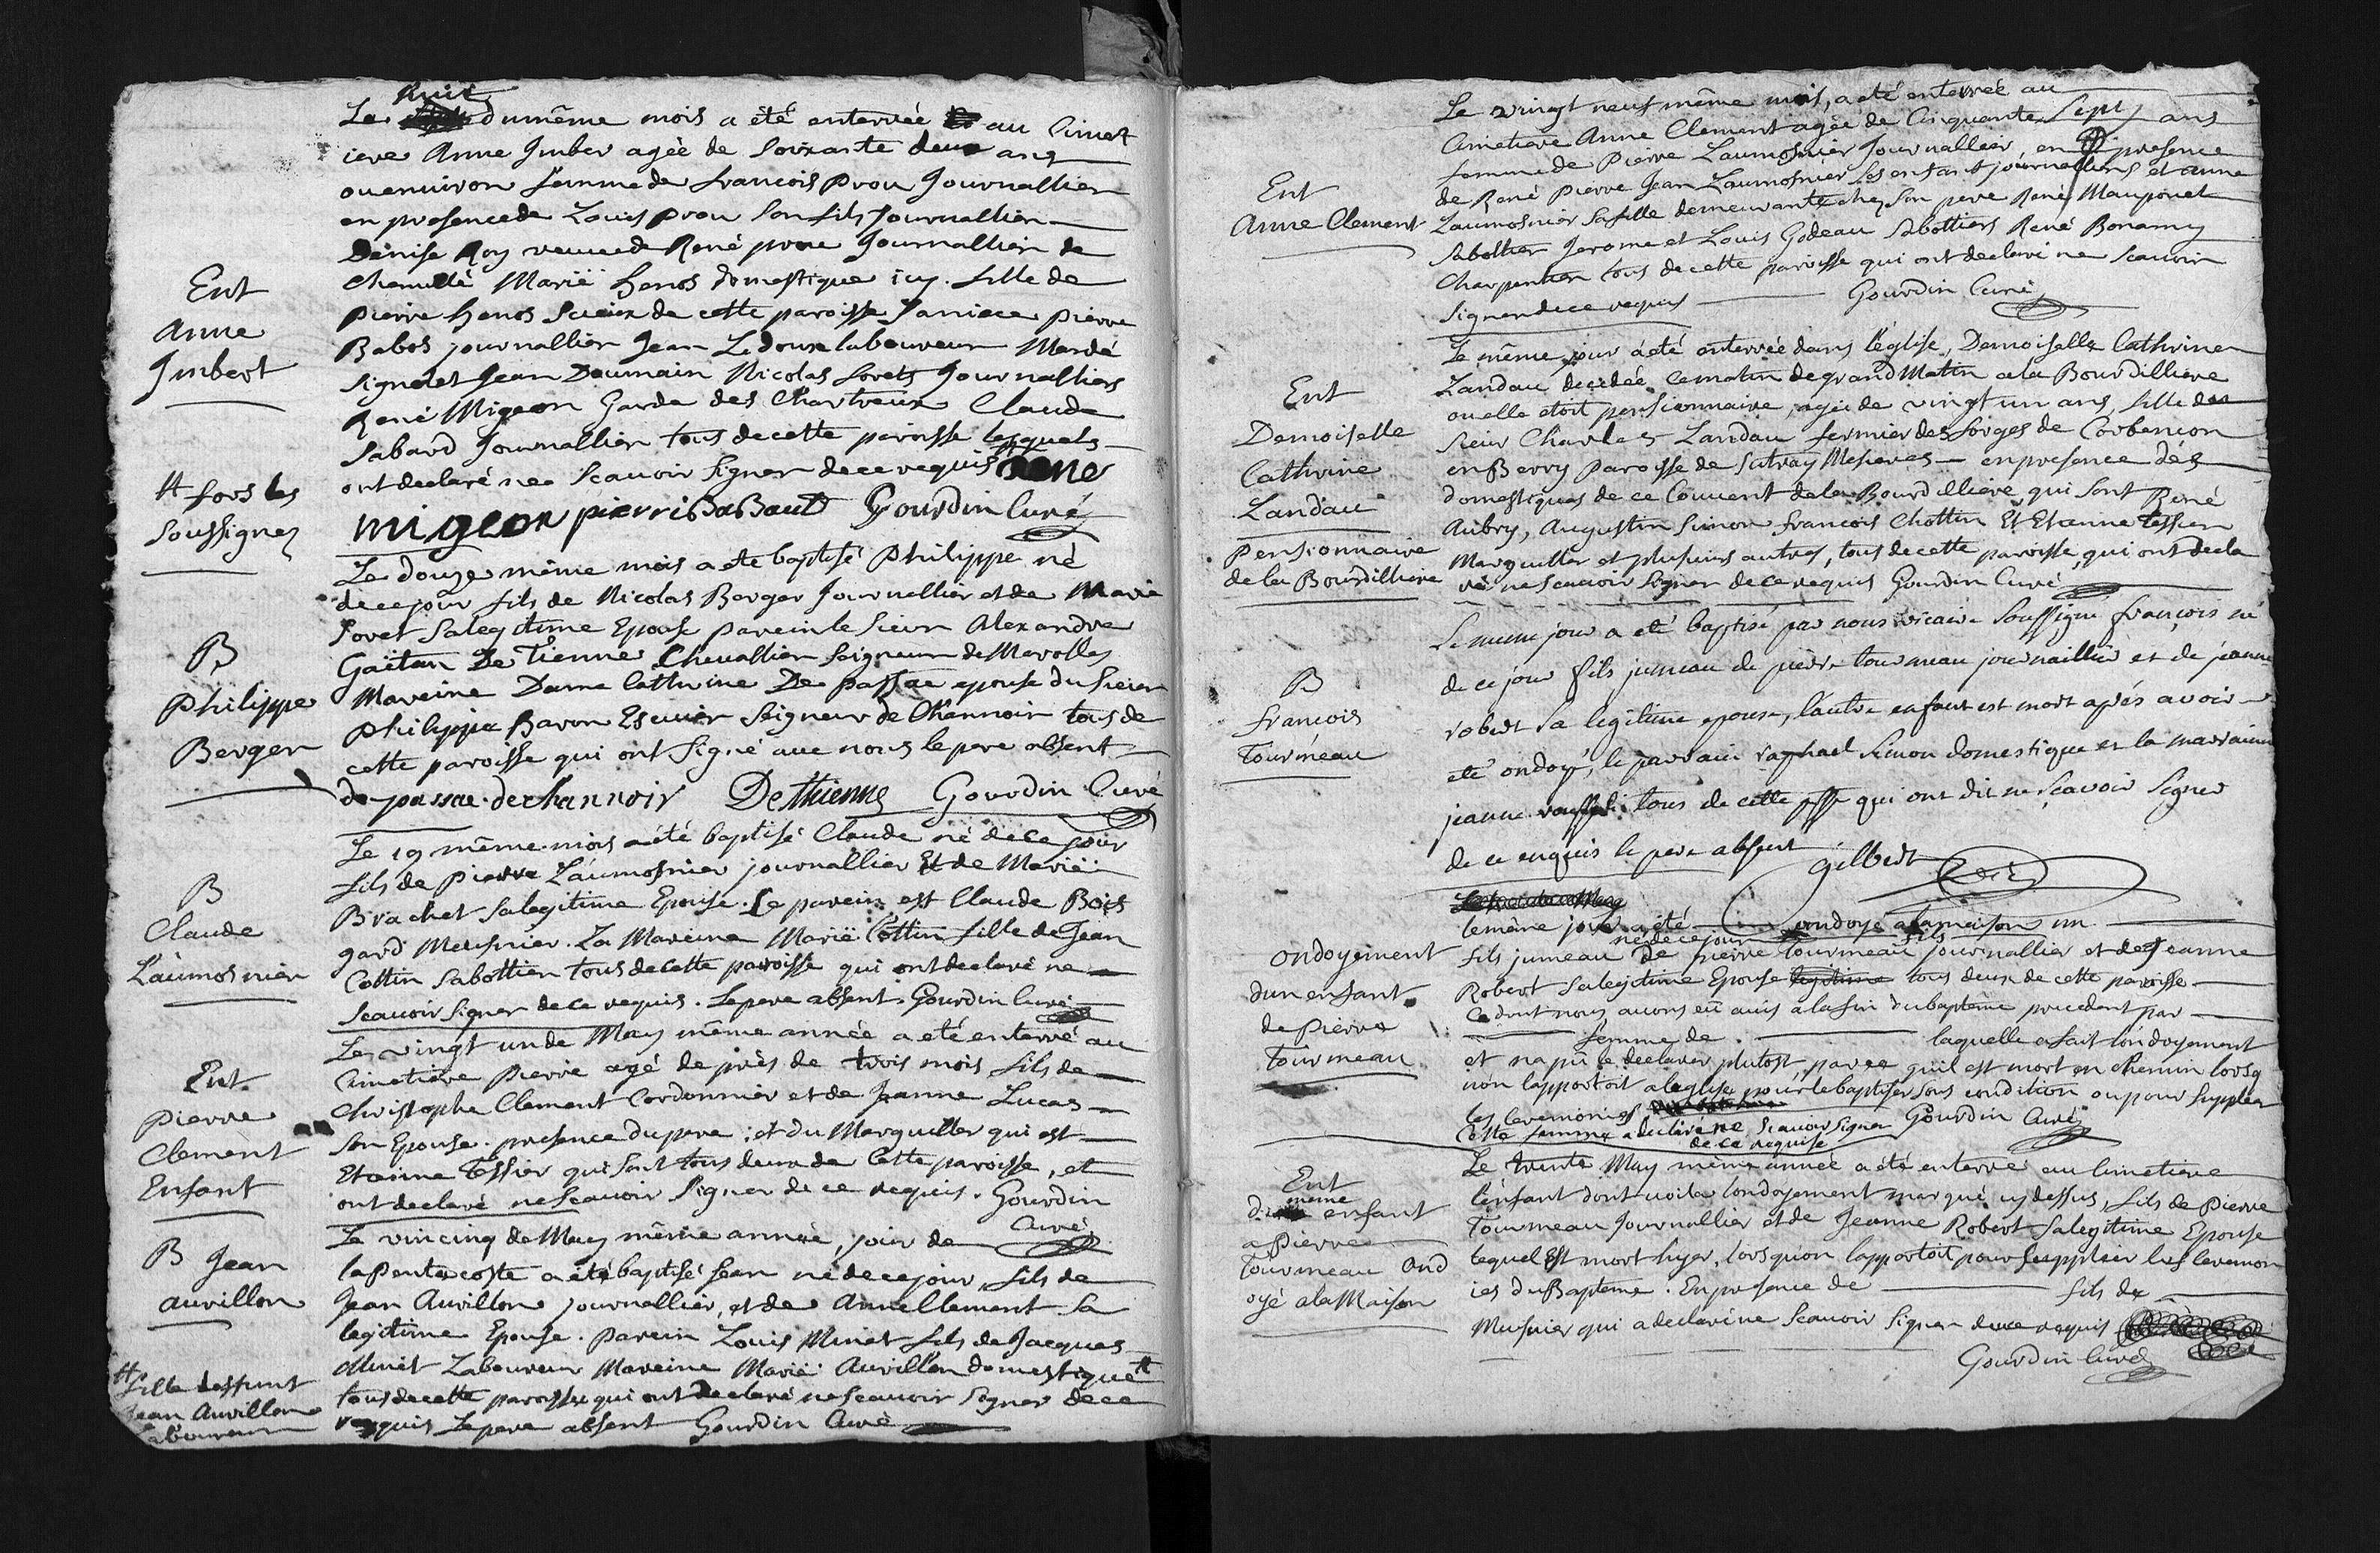 huit
Le dumême mois a été enterrée au Cimet
iere Anne Jmber agèe de Soixante deux ans
ou environ femme de francois prou Journallier
en presence de Louis prou son fils Journallier
Dènise Roy veuve de René prou Journallier de
Chemillé Marië henos domestique icy. fille de
pierre henos Scieur de cette paroisse Janiere pierre
Babos journallier Jean Ledoux laboureur Mardé
Signolet Jean Doumain Nicolas Sorets Journalliers
René Migeon Garde des Chartreux Claude
Sabard Journallier tous de cette paroisse lesquels
ont declaré ne Scauoir Signer de ce requis # Rene
migeon pierri BaBault Gourdin Curé
Ent
anne
Jmbert
# fors les
Soussignez
Le douze même mois a ete baptisé Philippe né
de ce jour fils de Nicolas Berger Journallier et de Marie
Soret Sa legitime Epouse parein le Sieur Alexandre
Gaëtan De Tienne Chevallier Seigneur de Marolles
Mareine Dame Cathrine De passac epouse du Sieur
Philippe Baron Escuier Seigneur de Chennoir tous de
cette paroisse qui ont Signé avec nous le pere absent
de passac. de channoir De Thienne Gourdin Curé
B
Philippe
Berger
Le 19 même mois a été baptisé Claude né de ce jour
fils de pierre Laúmosnier journallier Et de Mariëi
Brachet Sa legitime Epouse. Le parein est Claude Bois
gard Meusnier. La Mareine Marië Cottin fille de Jean
Cottin Sabottier tous de cette paroisse qui ont declaré ne
Scauoir Signer de ce requis. Le pere absent. Gourdin Curé
B
Claude
Laúmosnier
Le vingt un de May même année a eté enterré au
Cimetiére Pierre agé de près de trois mois fils de
Christophe Clement Cordonnier et de Jeanne Lucas
Son Epouse. presence du pere ; et du Marguiller qui est
Etienne Tessier qui Sont tous deux de Cette paroisse, et
ont declaré ne Scauoir Signer de ce requis. Gourdin
Curé
Ent
Pierre
Clement
Enfant
Le vincinq de May même année, jour de
la Pentecoste a été baptisé Jean né de ce jour, fils de
Jean Auvillon journallier, et de Anne Clement Sa
legitime Epouse. Parein Louis Minet fils de Jacques
Minet Laboureur Mareine Marië Auvillon domestique #
tous de cette paroisse qui ont declaré ne Scauoir Signer de ce
requis Le pere absent Gourdin Curé
B Jean
auvillon
# fille deffunt
Jean Auvillon
Laboureur
Le vringt neuf même mois, a eté enterrée au
Cimetiere Anne Clement agée de Cinquante Sept ans
femme de Pierre Laumosnier Journallier, en presence
de René Pierre Jean Laumosnier Ses enfants journalliers et anne
Laumosnier Sa fille demeurante chez Son pere René Mauponet
Sabottier Jerome et Louis Godeau Sabottiers René Bonamy
Charpentier tous de cette paroisse qui ont declaré ne Scauoir
Signer de ce requis Gourdin Curé
Ent
Anne Clement
Le même jour á eté enterrée dans l'église, Demoiselle Cathrine
Landau decedée ce matin de grand Matin a la Bourdilliere
ou elle etoit pensionnaire, agée de vingt un ans, fille de
Sieur Charles Landau fermier des forges de Corbencon
en Berry paroisse de Sutray Meseres en presence des
domestiques de ce Couuent de la Bourdilliére, qui sont René
Aubry, Augustin Simon francois Chottin Et Etienne tessier
Marguiller et plusieurs autres, tous de cette paroisse, qui ont decla
ré ne Scauoir Signer de ce requis Gourdin Curé
Ent
Demoiselle
Cathrine
Landau
Pensionnaire
de la Bourdilliere
Le meme jour a eté baptisé par nous vicaire Soussigné françois né
de ce jour fils jumeau de pierre tourmeau journaillier et de jeanne
robert Sa legitime epouse, l'autre enfant est mort aprés avoir
eté ondoyé, le parrain raphael Simon domestique et la marraine
jeanne tous de cette psse qui ont dit ne sçavoir Signer
de ce enquis le pere absent Gilbert
B
francois
Tourmeau
le même jour a été ondoyé a la maison un
né de ce jour fils
fils jumeau de pierre tourmeau journallier et de Jeanne
Robert Sa legitime Epouse tous deux de cette paroisse
Ce dont nous auons eû auis a la fin du baptême precedent par
femme de laquelle a fait l'ondoyement
et na pû le declarer plutost, parce quil est mort en chemin lorsq
uon lapportoit a leglise pour le baptiser Sous condition ou pour Suppléer
les Ceremonies Gourdin Curé
Cette femme a declaré ne Scauoir Signer
de ce requise
ondoyement
dun enfant
de Pierre
Tourmeau
Le trente May même année a été enterré au Cimetiere
l'enfant dont voila londoyement marqué cy dessus, fils de Pierre
Tourmeau Journallier et de Jeanne Robert Sa legitime Epouse
lequel Est mort hyer, lorsquon lapportoit pour Suppléer les Ceremon
ies du Bapteme. En presence de fils de
Musnier qui a declaré ne Scauoir Signer de ce requis
Gourdin Curé
Ent
même
enfant
a Pierre
Tourmeau Ond
oyé a la Maison